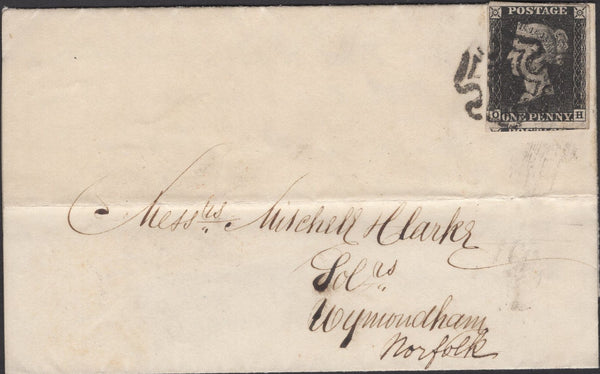 POSTAGE
O ONE PENNY H
Mess.rs Mitchell & Clarke
Sol.rs
Wymondham
Norfolk